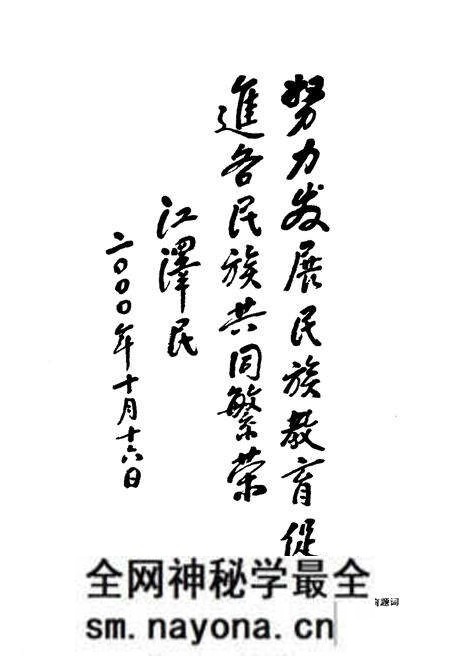 努力发展民族教育促
進各民族共同繁荣
江澤民
二000年十月十六日
全网神秘学最全
sm.nayona.cn
题词